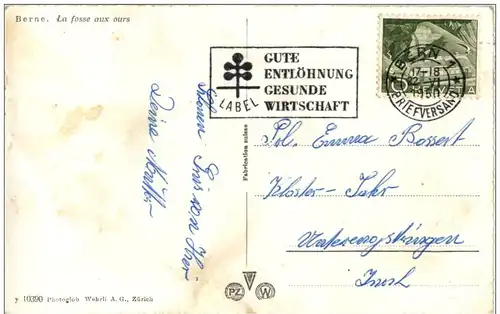 Berne. La fosse aux ours
GUTE
ENTLÖHNUNG
GESUNDE
WIRTSCHAFT
LABEL
BERN 1
17-18
1950
BRIEFVERSAND
Schönen Gruss von Ihrer
Deine Mutter
Fabrication suisse
Emma Bossert
Kloster-Fahr
Unterengstringen
7 10390 Photoglob-Wehrli A. G., Zürich
PZ W